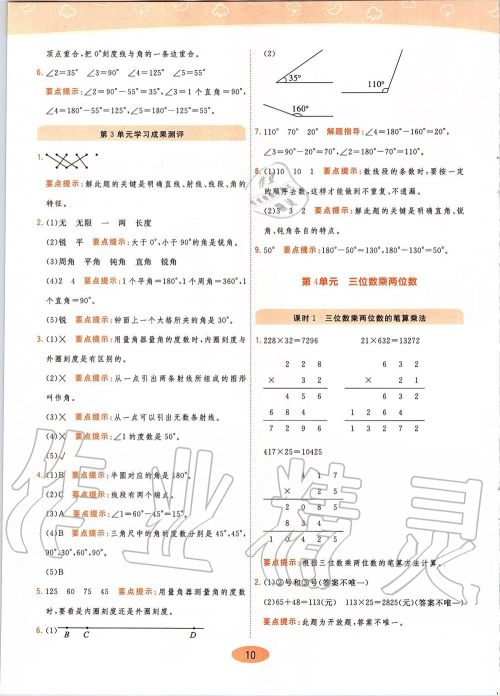 顶点重合,把0°刻度线与角的一条边重合。
6. ∠2=35° ∠3=90° ∠4=125° ∠5=55°
要点提示:∠2=90°-55°=35°,∠3=1个直角=90°,
∠4=180°-55°=125°,∠5=180°-125°=55°。
第3单元学习成果测评
1.
要点提示:解此题的关键是明确直线、射线、线段、角的
特征。
2. (1)无 无限 一 两 长度
(2)锐 平 要点提示:大于0°,小于90°的角是锐角。
(3)周角 平角 钝角 直角 锐角
(4)2 4 要点提示:1个平角=180°,1个周角=360°,1
个直角=90°。
(5)锐 要点提示:钟面上一个大格所夹的角是30°。
3. (1)× 要点提示:用量角器量角的度数时,内圈刻度与
外圈刻度是有区别的。
(2)× 要点提示:从一点引出两条射线所组成的图形
叫作角。
(3)× 要点提示:从一点可以引出无数条射线。
(4)× 要点提示:∠1的度数是50°。
(5)√
4. (1)B 要点提示:半圆对应的角是180°。
(2)C 要点提示:线段有两个端点。
(3)A 要点提示:∠1=60°-45°=15°。
(4)B 要点提示:三角尺中的角的度数分别是45°,45°,
90°,30°,60°,90°。
(5)B
5. 125 60 75 45 要点提示:用量角器测量角的度数
时,要看是内圈刻度还是外圈刻度。
6. (1)
B C D
(2)
35°
110°
160°
7. 110° 70° 20° 解题指导:∠4=180°-160°=20°,
∠3=90°-20°=70°,∠2=180°-70°=110°。
8. (1)10 10 1 要点提示:数线段的条数时,要按一定
的顺序去数,这样才能做到不重复、不遗漏。
(2)3 3 2 要点提示:解此题的关键是明确直角、锐
角、钝角各自的特点。
9. 50° 要点提示:180°-50°=130°,180°-130°=50°。
第4单元 三位数乘两位数
课时1 三位数乘两位数的笔算乘法
1. 228×32=7296 21×632=13272
2 2 8 6 3 2
× 3 2 × 2 1
4 5 6 6 3 2
6 8 4 1 2 6 4
7 2 9 6 1 3 2 7 2
417×25=10425
× 2 5
2 0 8 5
8 3 4
1 0 4 2 5
要点提示:根据三位数乘两位数的笔算方法计算。
2. (1)②号和③号(答案不唯一)
(2)65+48=113(元) 113×25=2825(元)(答案不唯一)
要点提示:此题为开放题,答案不唯一。
10
作业精灵